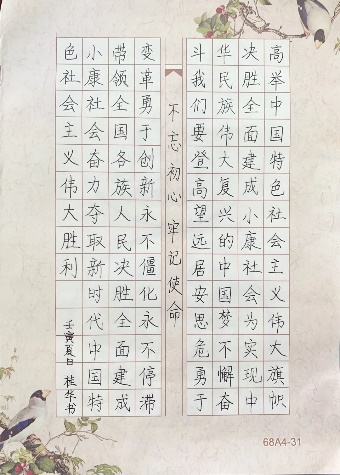 高举中国特色社会主义伟大旗帜
决胜全面建成小康社会为实现中
华民族伟大复兴的中国梦不懈奋
斗我们要登高望远居安思危勇于
不忘初心 牢记使命
变革勇于创新永不僵化永不停滞
带领全国各族人民决胜全面建成
小康社会奋力夺取新时代中国特
色社会主义伟大胜利
壬寅夏日 桂华书
68A4-31